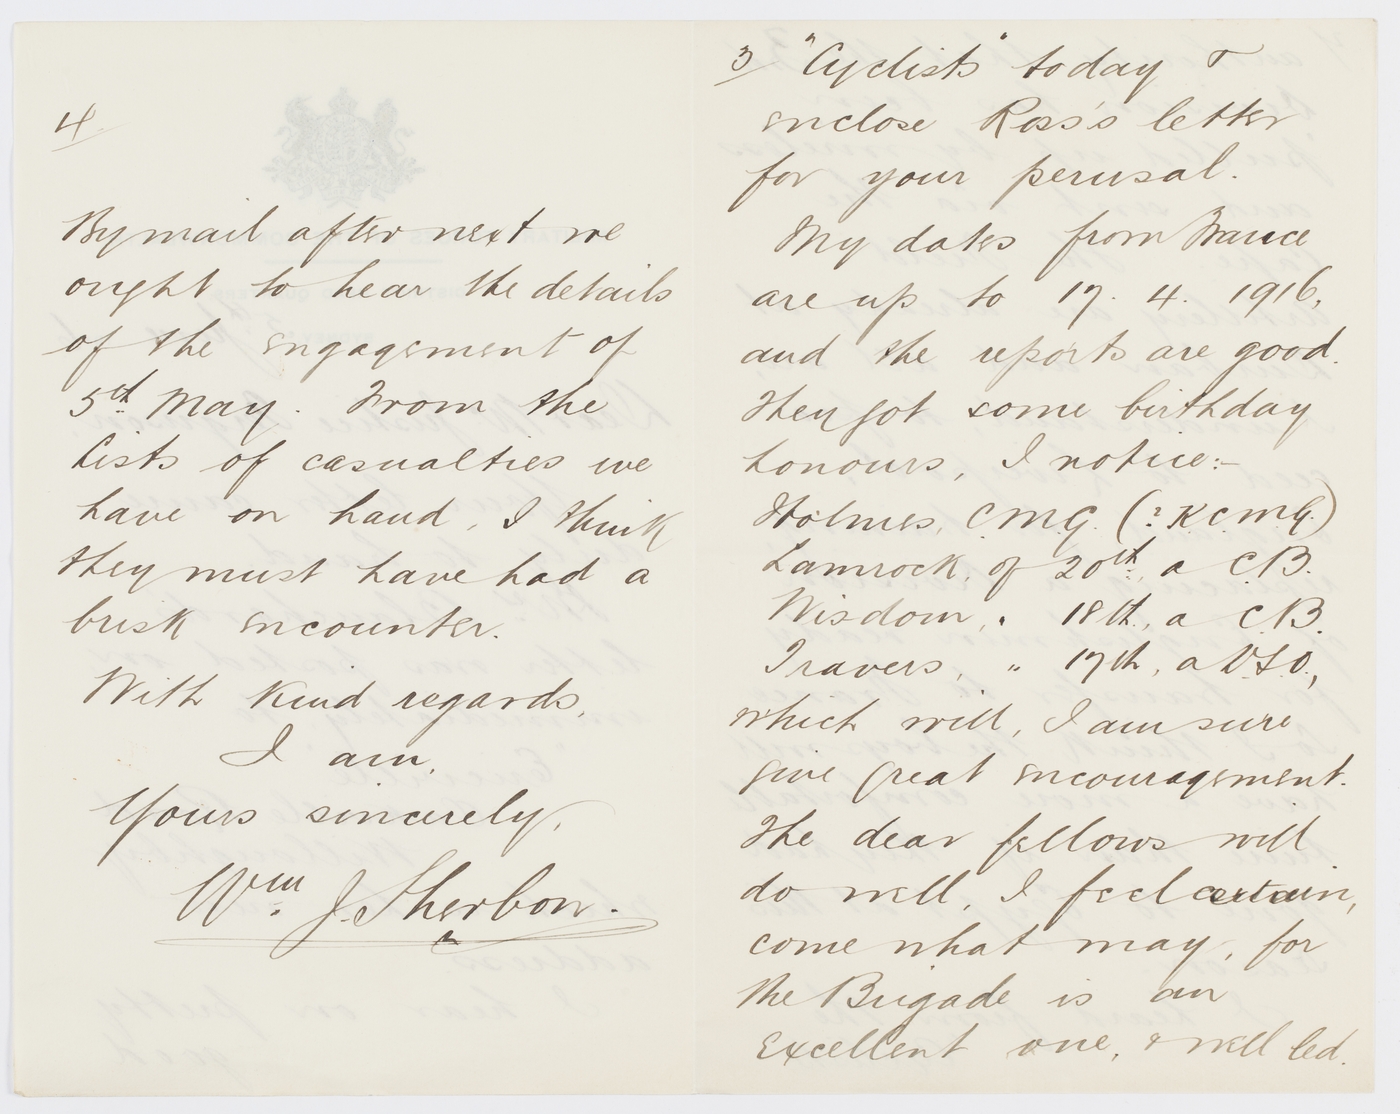 3 "Cyclists" today &
enclose Ross's letter
for your perusal.
My dates from France
are up to 17. 4. 1916,
and the reports are good.
They got some birthday
honours, I notice:-
Holmes, C.M.G. (? K.C.M.G.)
Lamrock, of 20th, a C.B.
Wisdom, " 18th, a C.B.
Travers, " 17th, a D.S.O.,
which will, I am sure
give great encouragement.
The dear fellows will
do well, I feel certain,
come what may, for
the Brigade is an
excellent one, & well led.
4
By mail after next we
ought to hear the details
of the engagement of
5th May. From the
lists of casualties we
have on hand, I think
they must have had a
brisk encounter.
With kind regards,
I am,
Yours sincerely,
Wm. J. Sherbon.